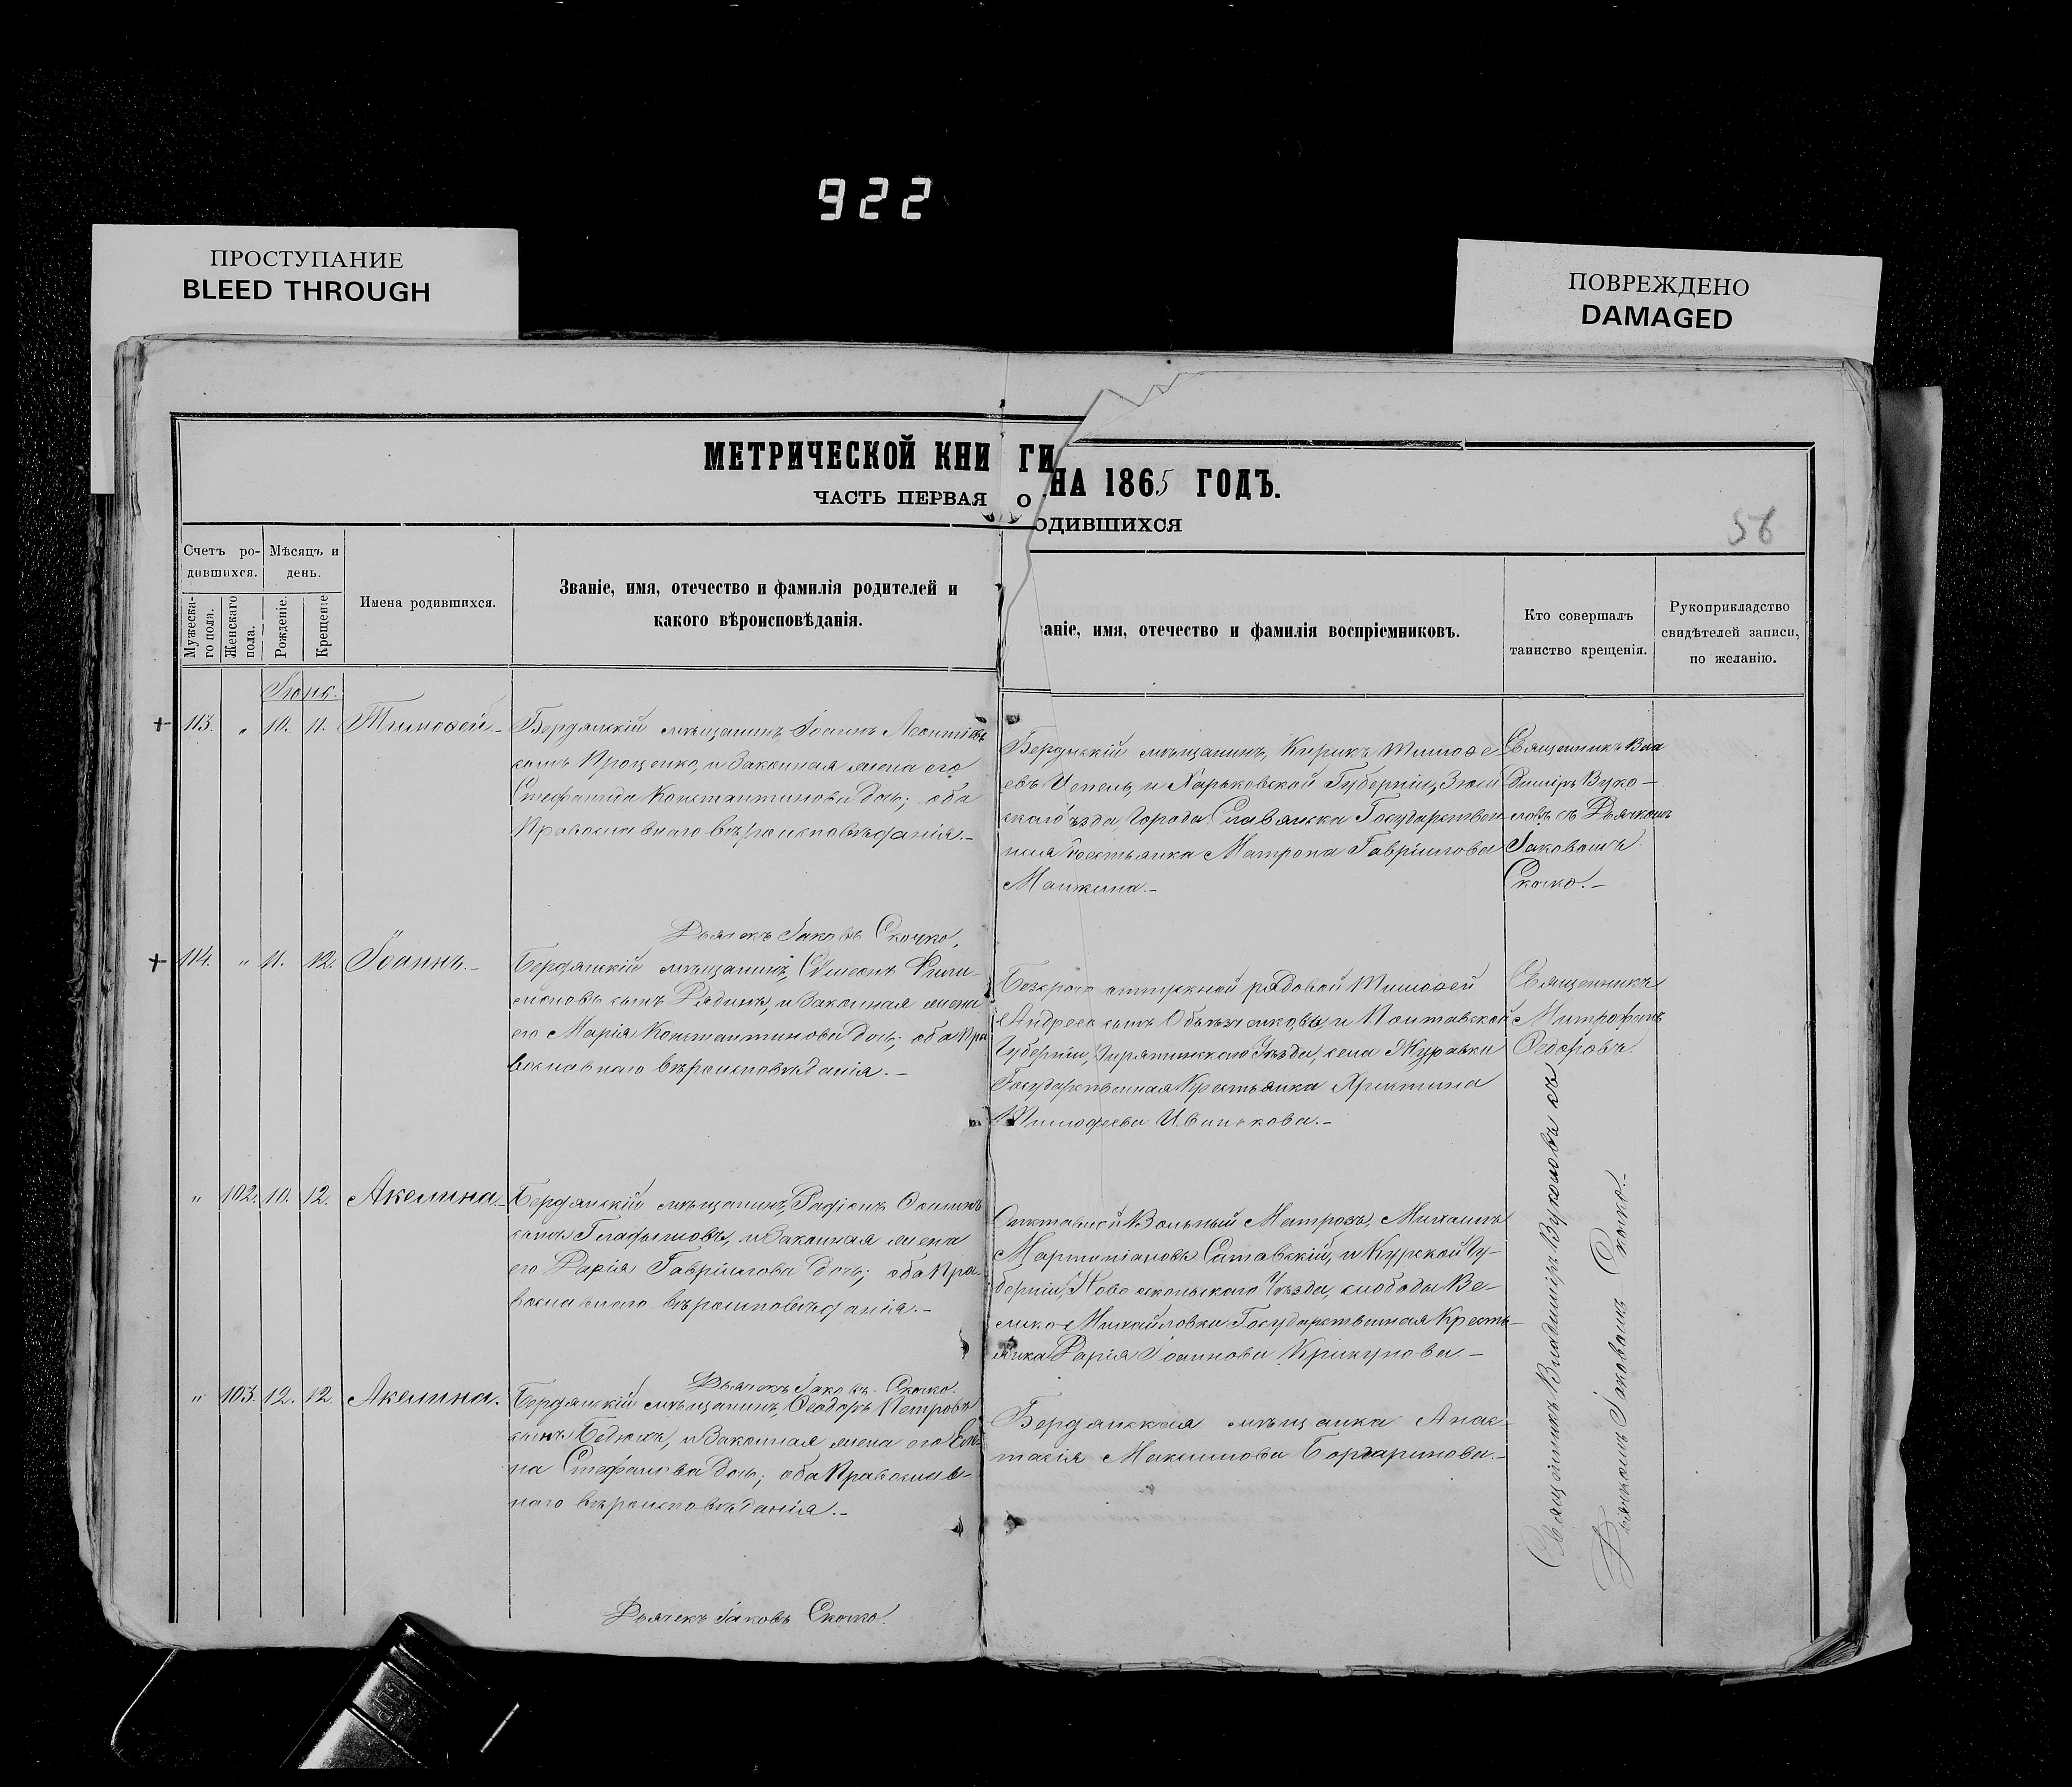 922
ПРОСТУПАНИЕ
BLEED THROUGH
ПОВРЕЖДЕНО
DAMAGED
МЕТРИЧЕСКОЙ КНИГИ
НА 1865 ГОДЪ.
ЧАСТЬ ПЕРВАЯ О
ОДИВШИХСЯ
56
Счетъ ро-
дившихся.
Мѣсяцъ и
день.
Мужеска-
го пола.
Женскаго
пола.
Рожденіе.
Крещеніе
Имена родившихся.
Званіе, имя, отечество и фамилія родителей и
какого вѣроисповѣданія.
аніе, имя, отечество и фамилія воспріемниковъ.
Кто совершалъ
таинство крещенія.
Рукоприкладство
свидѣтелей записи,
по желанію.
Іюнь.
113. " 10. 11. Тимоѳей.
Бердянскій мѣщанинъ, Іоаннъ Леонтіевъ
сынъ Проценко, и законная жена его
Стефанида Константинова дочь; оба
Православнаго вѣроисповѣданія.-
Бердянскій мѣщанинъ, Кирикъ Тимоѳе
евъ Цепель, и Харьковской Губерніи,
скаго ѣзда, Города Славянска Государствен
ная Крестьянка Матрона Гавріилова
Священникъ Вла
диміръ Вуко-
ловъ съ Дьячкомъ
Іаковомъ
Скочко.-
Дьячекъ Іаковъ Скочко.
114. " 11. 12. Іоаннъ.-
Бердянскій мѣщанинъ, Сѵмеонъ Фили-
моновъ сынъ Рядинъ, и законная жена
его Марія Константинова дочь; оба Пра
вославнаго вѣроисповѣданія.-
отпускной рядовой Тимоѳей
Андреевъ сынъ и Полтавской
Губерніи, Пирятинскаго Уѣзда, села Журавки
Государственная Крестьянка Христина
Тимоѳеева Иванькова.-
Священникъ
Митрофанъ
Ѳедоровъ.
" 102. 10. 12. Акелина.-
Бердянскій мѣщанинъ, Родіонъ Осиповъ
сынъ и законная жена
его Дарія Гавріилова дочь; оба Пра-
вославнаго вѣроисповѣданія.-
Отставной Вольный Матрозъ, Михаилъ
Мартиніановъ Ситавскій, и Курской Гу-
берніи, Ново оскольскаго Уѣзда, слободы Ве-
лико-Михайловки Государственная Кресть-
янка Дарія Іоаннова Крикунова.-
Дьячекъ Іаковъ Скочко.
" 103. 12. 12. Акелина.
Бердянскій мѣщанинъ, Ѳеодоръ Петровъ
сынъ и законная жена его Еле-
на Стефанова дочь; оба Православ-
наго вѣроисповѣданія.-
Бердянская мѣщанка Анас-
тасія Максимова
Священникъ Владиміръ Вуколовъ съ
Дьячкомъ Іаковомъ Скочко.-
Дьячекъ Іаковъ Скочко.